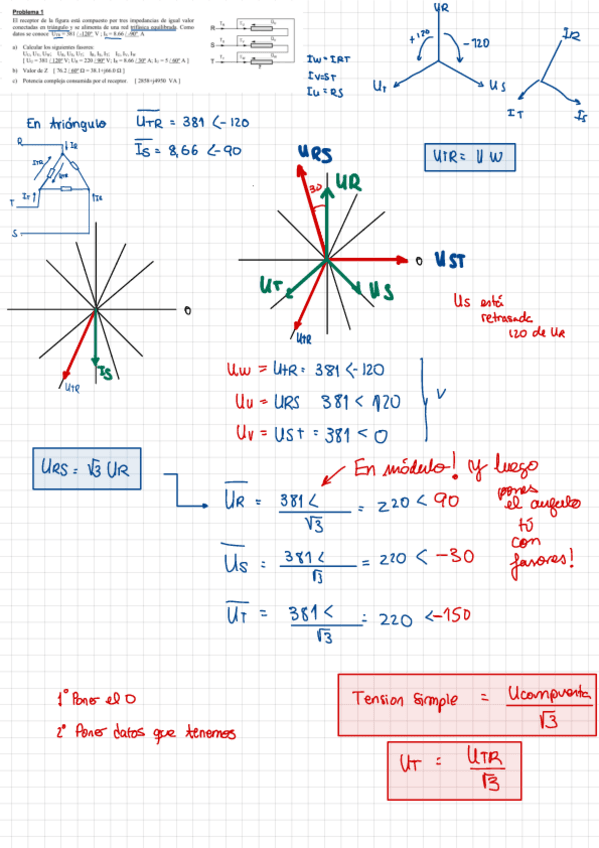 Problema 1
El receptor de la figura está compuesto por tres impedancias de igual valor
conectadas en triángulo y se alimenta de una red trifásica equilibrada. Como
datos se conoce U_TR = 381 /-120° V ; I_S = 8.66 /-90° A
a) Calcular los siguientes fasores
b) Valor de Z [ 76.2 /60° Ω = 38.1+j66.0 Ω ]
c) Potencia compleja consumida por el receptor. [ 2858+j4950 VA ]
R
S
T
IW = IRT
IV=ST
IU = RS
UR
+120
-120
UT
US
IR
IT
IS
En triángulo
UTR = 381 <-120
IS = 8,66 <-90
R
IR
ITR
IT
T
S
URS
30
UR
UTR = UW
0
UST
UT
US
UTR
0
IS
UTR
Us está
retrasada
120 de UR
Uw = UTR = 381 <-120
Uu = URS 381 < 120
Uv = UST = 381 < 0
V
URS = √3 UR
En módulo! y luego
pones
el angulo
tú
con
fasores!
UR = 381 < / √3 = 220 < 90
US = 381 < / √3 = 220 < -30
UT = 381 < / √3 = 220 <-150
1º Poner el 0
2º Poner datos que tenemos
Tension simple = Ucompuesta / √3
UT = UTR / √3